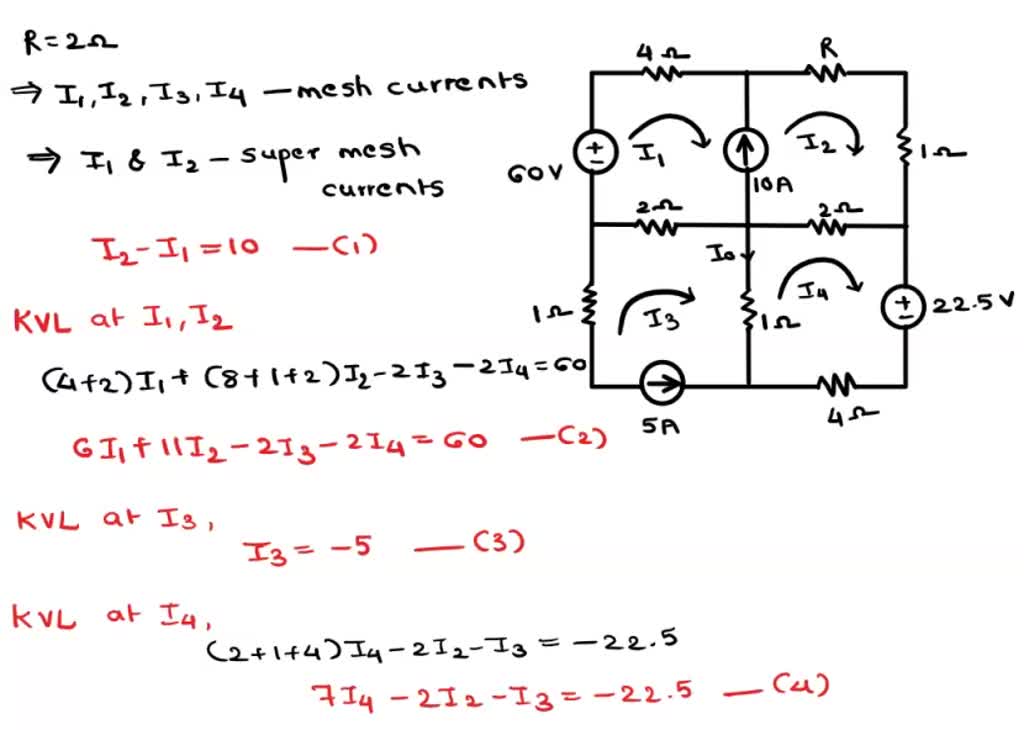 R=2Ω
⇒ I₁, I₂, I₃, I₄ – mesh currents
⇒ I₁ & I₂ – super mesh
currents
I₂-I₁=10 —(1)
KVL at I₁, I₂
(4+2)I₁+(8+1+2)I₂-2I₃-2I₄=60
6I₁+11I₂-2I₃-2I₄=60 —(2)
KVL at I₃,
I₃=-5 —(3)
KVL at I₄,
(2+1+4)I₄-2I₂-I₃=-22.5
7I₄-2I₂-I₃=-22.5 —(4)
4Ω R
60V + - I₁ I₂ 1Ω
10A
2Ω 2Ω
I₀
1Ω I₃ 1Ω I₄ + - 22.5V
5A 4Ω